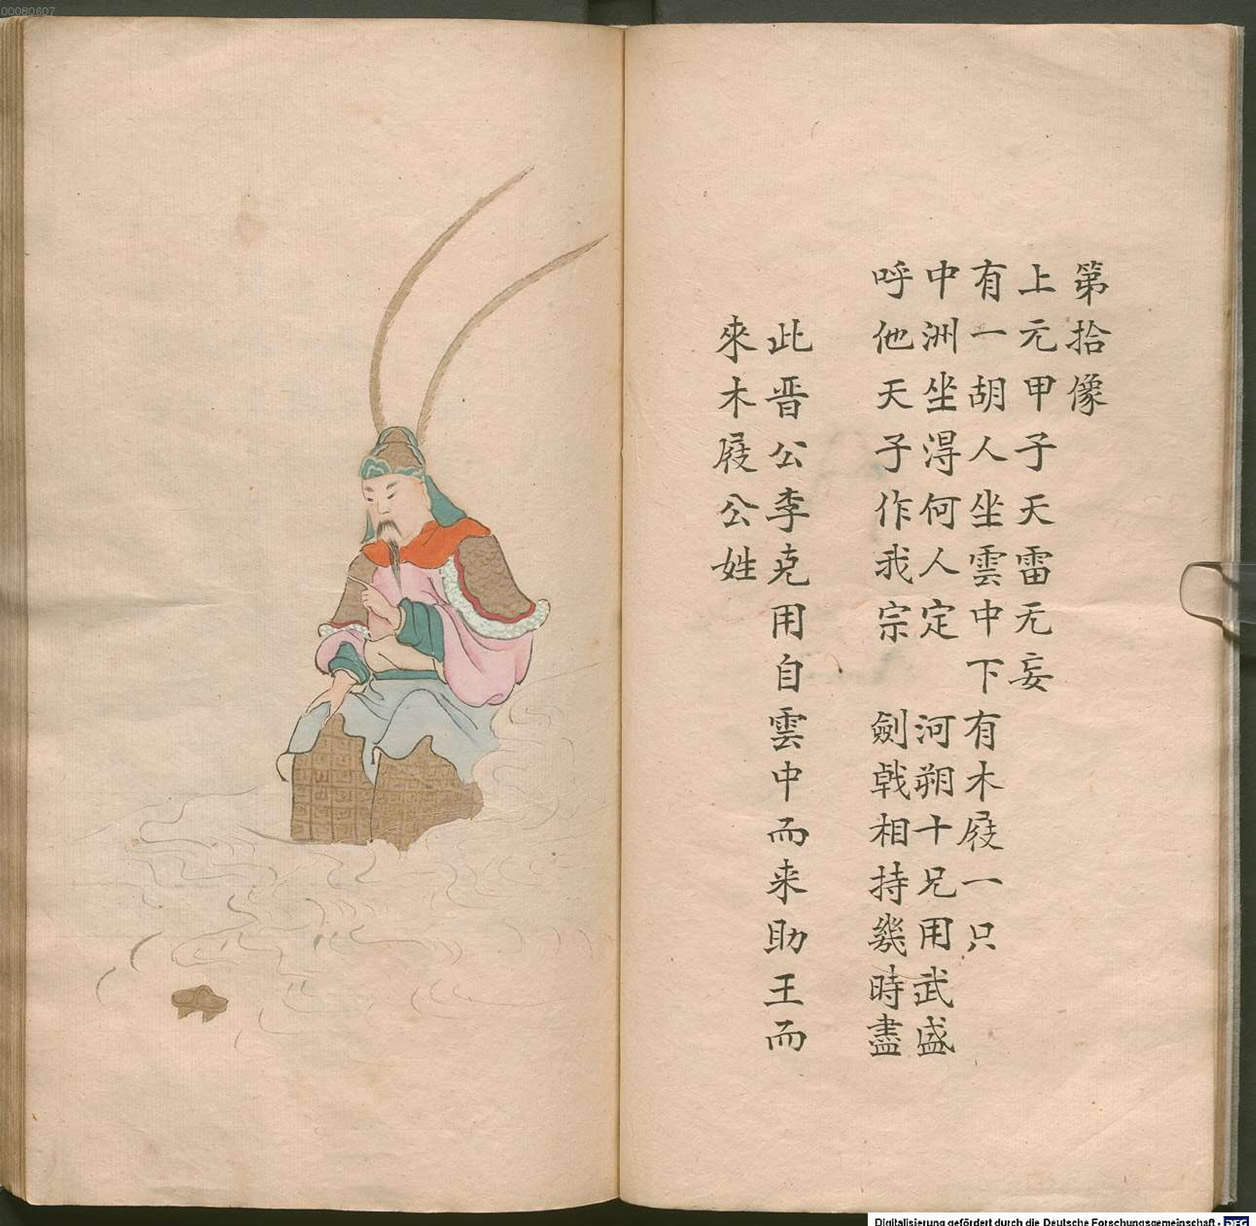 00080607
第拾像
上元甲子天雷无妄
有一胡人坐雲中下有木屐一只
中洲坐淂何人定 河朔十兄用武盛
呼他天子作我宗 劍戟相持幾時盡
此晋公李克用自雲中而来助王而
來木屐公姓
Digitalisierung gefördert durch die Deutsche Forschungsgemeinschaft - DFG